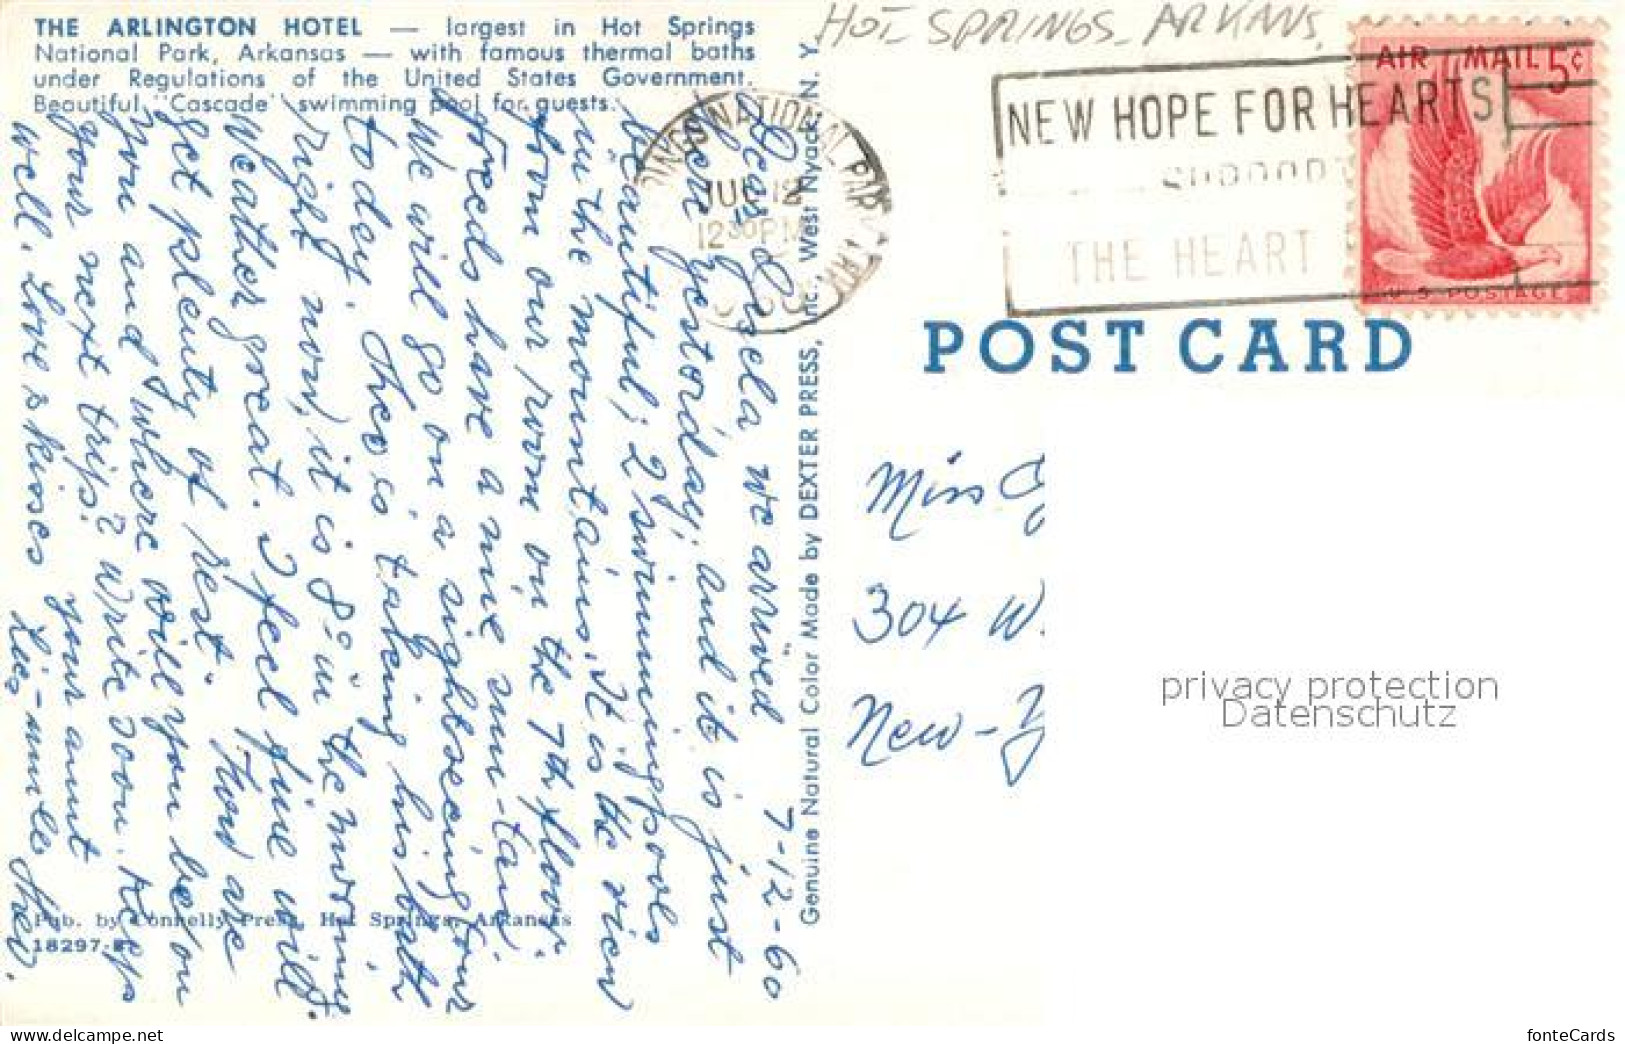 THE ARLINGTON HOTEL — largest in Hot Springs
National Park, Arkansas — with famous thermal baths
under Regulations of the United States Government.
Beautiful "Cascade" swimming pool for guests.
7-12-60
Dear Gisela we arrived
here yestorday, and it is just
beautiful; 2 swimmingpools
in the mountains. It is the view
from our room on the 7th floor.
freds have a nive sun-tan.
We will go on a sightseeing tour
today. Theo is taking his bath
right now, it is 8° in the morning
Weather great. I feel fine will
get plenty of rest. How are
you and where will you be on
your next trip? Write soon. Keeps
well. Love & kisses your aunt
Theo.
Pub. by Connelly Press, Hot Springs, Arkansas
18297-B
Genuine Natural Color Made by DEXTER PRESS, Inc., West Nyack, N. Y.
HOT SPRINGS - ARKANS.
NATIONAL PARK
JUL 12
12 30 PM
NEW HOPE FOR HEARTS
SUPPORT
THE HEART
AIR MAIL 5¢
U.S. POSTAGE
POST CARD
Miss G
304 W.
New-Y
privacy protection
Datenschutz
www.delcampe.net
fonteCards